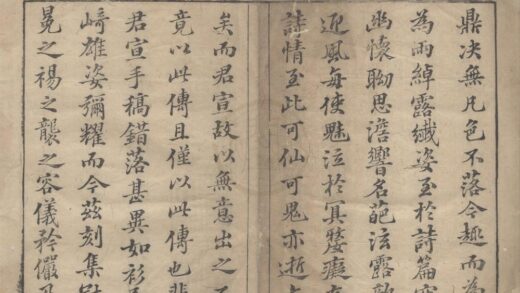 鼎决無凡色不落今趣而為
為雨綽露纖姿至於詩篇
幽懷聊思澹響名葩泫露
迎風每使魅泣於冥嫠
詩情至此可仙可鬼亦逝
矣而君宣故以無意出之
竟以此傳且僅以此傳也
君宣手稿錯落甚異如
崎雄姿彌耀而今茲刻集
冕之裼之襲之容儀矜儼